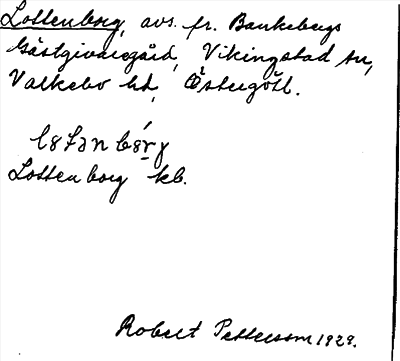 Lottenborg, avs. fr. Bankebergs
Gästgivaregård, Vikingstad sn,
Valkebo hd, Östergötl.
lotənbórg
Lottenborg kb.
Robert Pettersson 1929.